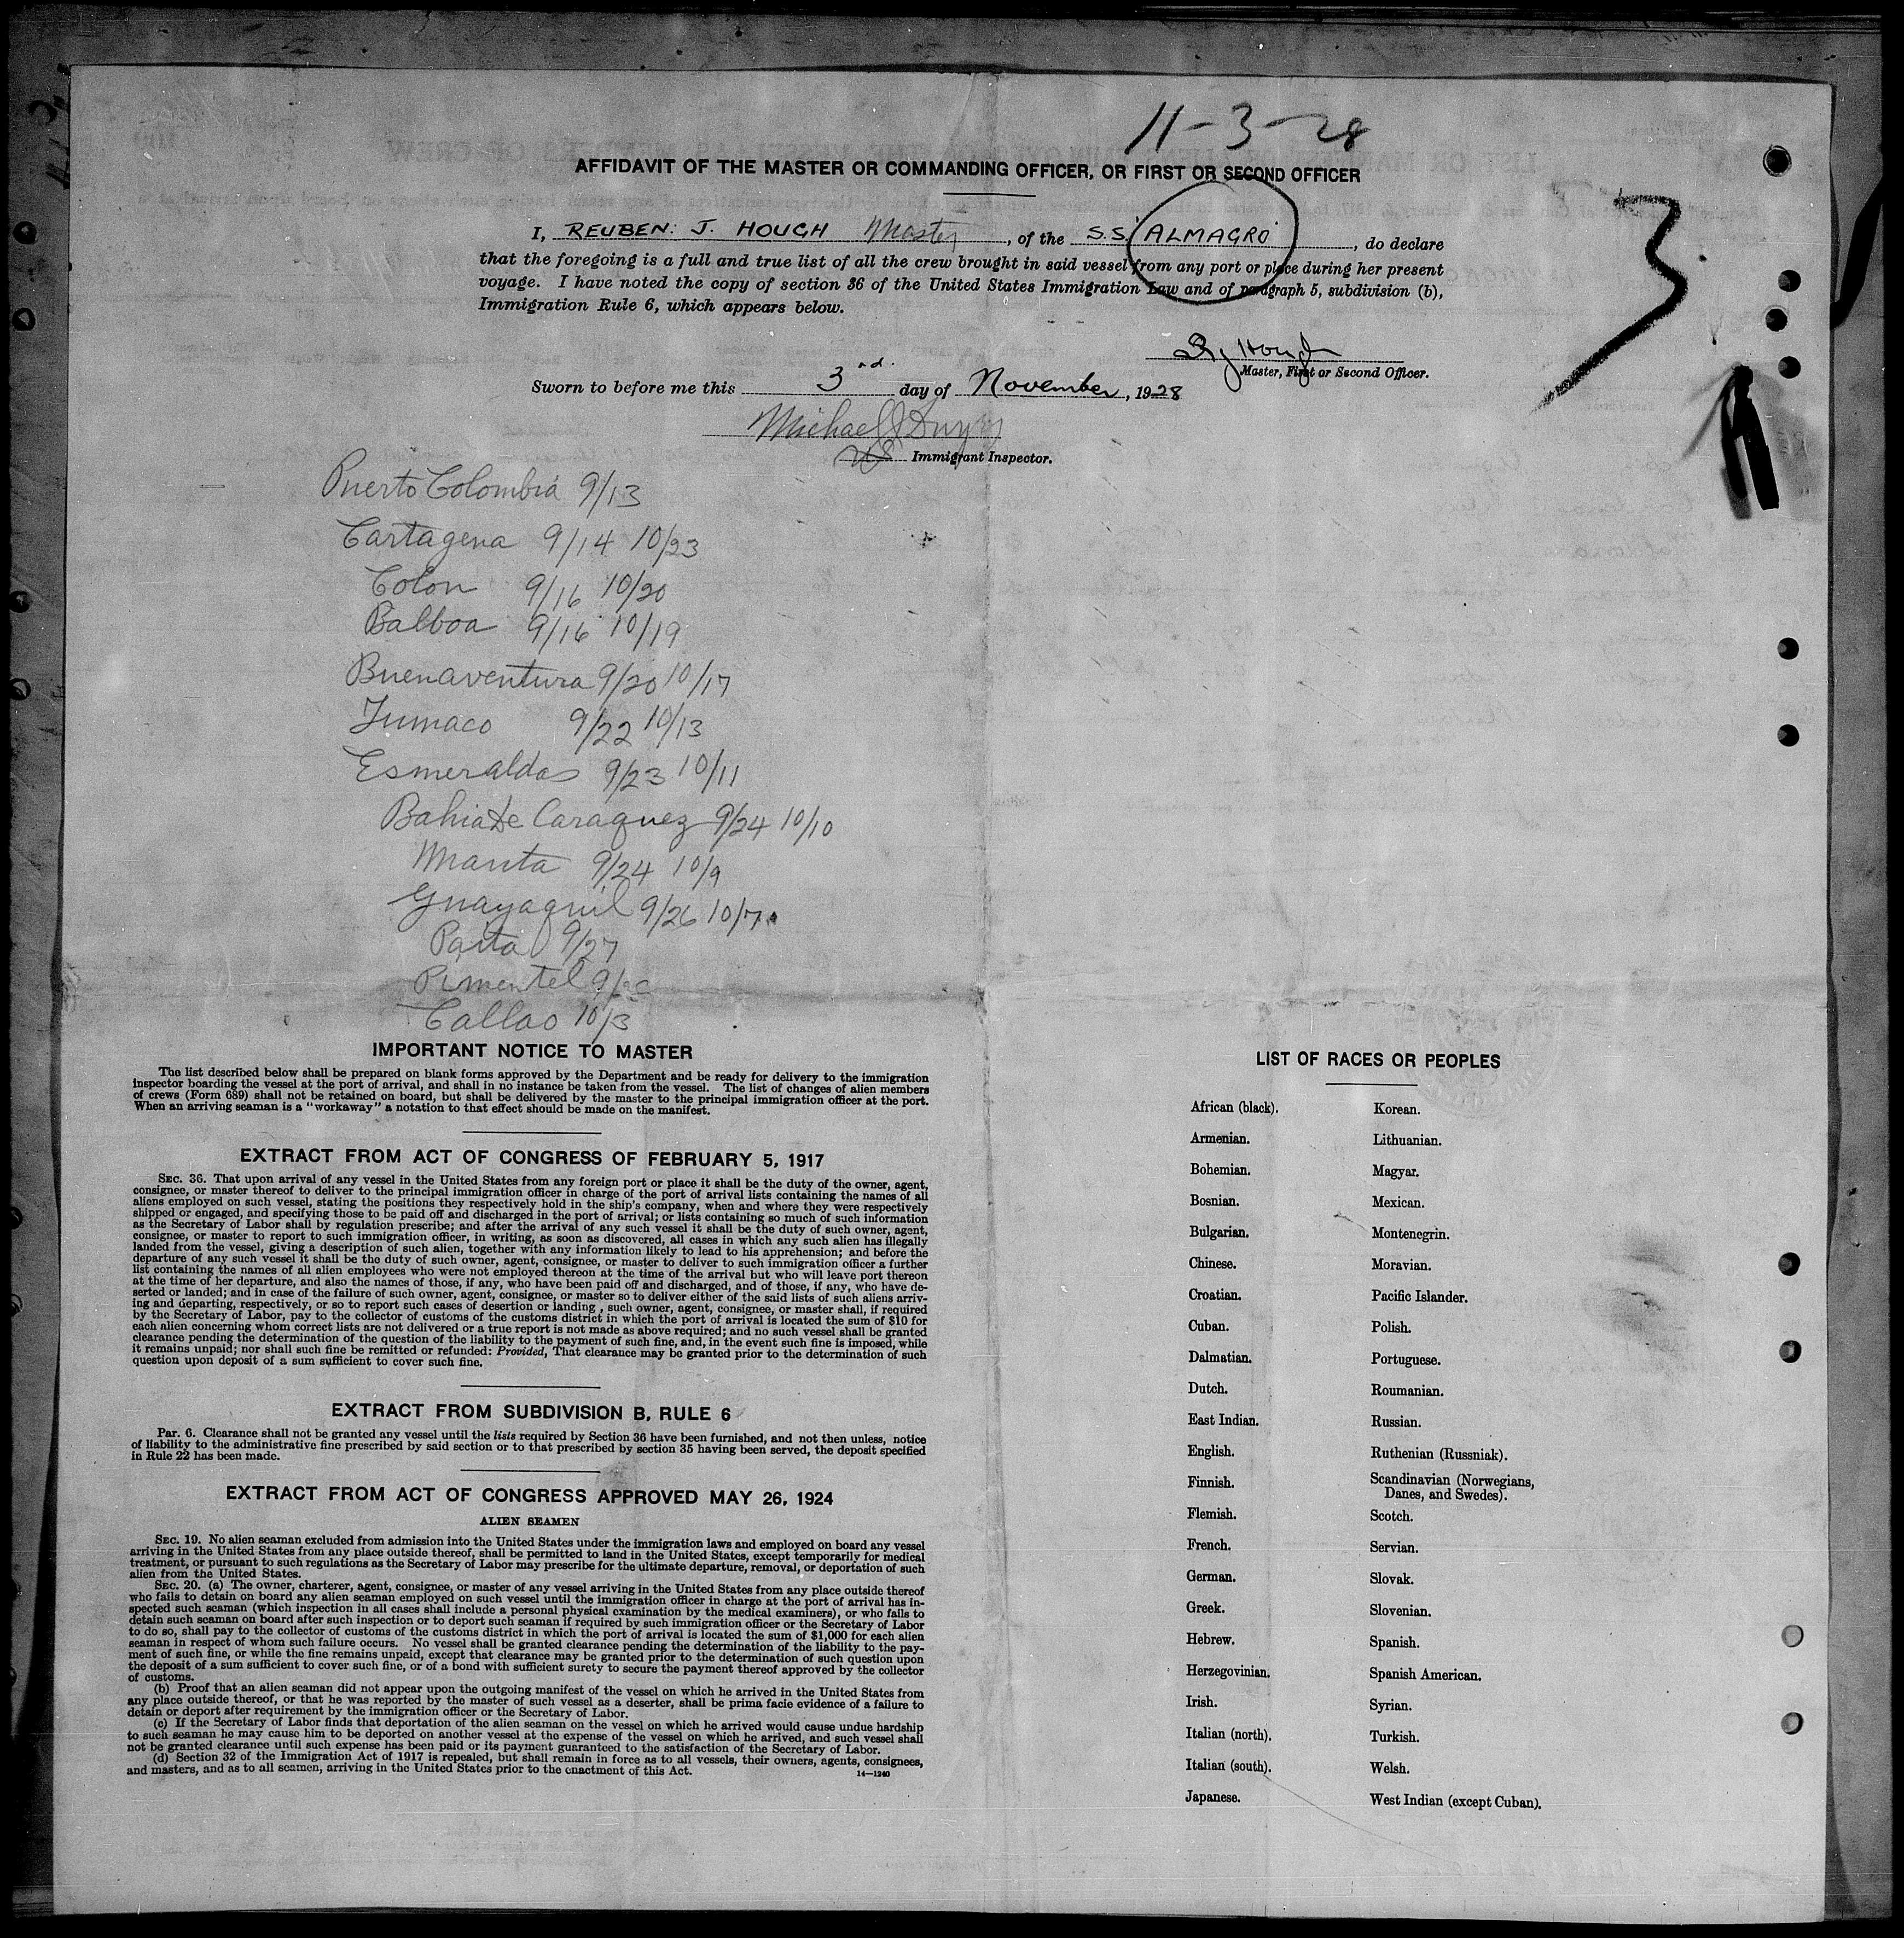 11-3-28
AFFIDAVIT OF THE MASTER OR COMMANDING OFFICER, OR FIRST OR SECOND OFFICER
I, REUBEN. J. HOUGH Master, of the S.S. ALMAGRO, do declare
that the foregoing is a full and true list of all the crew brought in said vessel from any port or place during her present
voyage. I have noted the copy of section 36 of the United States Immigration Law and of paragraph 5, subdivision (b),
Immigration Rule 6, which appears below.
3
Hough
Master, First or Second Officer.
Sworn to before me this 3rd. day of November, 1928
Michael
US Immigrant Inspector.
Puerto Colombia 9/13
Cartagena 9/14 10/23
Colon 9/16 10/20
Balboa 9/16 10/19
Buenaventura 9/20 10/17
Tumaco 9/22 10/13
Esmeraldas 9/23 10/11
Bahia de Caraquez 9/24 10/10
Manta 9/24 10/9
Guayaquil 9/26 10/7
Paita 9/27
Pimentel
Callao 10/3
IMPORTANT NOTICE TO MASTER
The list described below shall be prepared on blank forms approved by the Department and be ready for delivery to the immigration
inspector boarding the vessel at the port of arrival, and shall in no instance be taken from the vessel. The list of changes of alien members
of crews (Form 689) shall not be retained on board, but shall be delivered by the master to the principal immigration officer at the port.
When an arriving seaman is a "workaway" a notation to that effect should be made on the manifest.
EXTRACT FROM ACT OF CONGRESS OF FEBRUARY 5, 1917
SEC. 36. That upon arrival of any vessel in the United States from any foreign port or place it shall be the duty of the owner, agent,
consignee, or master thereof to deliver to the principal immigration officer in charge of the port of arrival lists containing the names of all
aliens employed on such vessel, stating the positions they respectively hold in the ship's company, when and where they were respectively
shipped or engaged, and specifying those to be paid off and discharged in the port of arrival; or lists containing so much of such information
as the Secretary of Labor shall by regulation prescribe; and after the arrival of any such vessel it shall be the duty of such owner, agent,
consignee, or master to report to such immigration officer, in writing, as soon as discovered, all cases in which any such alien has illegally
landed from the vessel, giving a description of such alien, together with any information likely to lead to his apprehension; and before the
departure of any such vessel it shall be the duty of such owner, agent, consignee, or master to deliver to such immigration officer a further
list containing the names of all alien employees who were not employed thereon at the time of the arrival but who will leave port thereon
at the time of her departure, and also the names of those, if any, who have been paid off and discharged, and of those, if any, who have de-
serted or landed; and in case of the failure of such owner, agent, consignee, or master so to deliver either of the said lists of such aliens arriv-
ing and departing, respectively, or so to report such cases of desertion or landing, such owner, agent, consignee, or master shall, if required
by the Secretary of Labor, pay to the collector of customs of the customs district in which the port of arrival is located the sum of $10 for
each alien concerning whom correct lists are not delivered or a true report is not made as above required; and no such vessel shall be granted
clearance pending the determination of the question of the liability to the payment of such fine, and, in the event such fine is imposed, while
it remains unpaid; nor shall such fine be remitted or refunded: Provided, That clearance may be granted prior to the determination of such
question upon deposit of a sum sufficient to cover such fine.
EXTRACT FROM SUBDIVISION B, RULE 6
Par. 6. Clearance shall not be granted any vessel until the lists required by Section 36 have been furnished, and not then unless, notice
of liability to the administrative fine prescribed by said section or to that prescribed by section 35 having been served, the deposit specified
in Rule 22 has been made.
EXTRACT FROM ACT OF CONGRESS APPROVED MAY 26, 1924
ALIEN SEAMEN
SEC. 19. No alien seaman excluded from admission into the United States under the immigration laws and employed on board any vessel
arriving in the United States from any place outside thereof, shall be permitted to land in the United States, except temporarily for medical
treatment, or pursuant to such regulations as the Secretary of Labor may prescribe for the ultimate departure, removal, or deportation of such
alien from the United States.
SEC. 20. (a) The owner, charterer, agent, consignee, or master of any vessel arriving in the United States from any place outside thereof
who fails to detain on board any alien seaman employed on such vessel until the immigration officer in charge at the port of arrival has in-
spected such seaman (which inspection in all cases shall include a personal physical examination by the medical examiners), or who fails to
detain such seaman on board after such inspection or to deport such seaman if required by such immigration officer or the Secretary of Labor
to do so, shall pay to the collector of customs of the customs district in which the port of arrival is located the sum of $1,000 for each alien
seaman in respect of whom such failure occurs. No vessel shall be granted clearance pending the determination of the liability to the pay-
ment of such fine, or while the fine remains unpaid, except that clearance may be granted prior to the determination of such question upon
the deposit of a sum sufficient to cover such fine, or of a bond with sufficient surety to secure the payment thereof approved by the collector
of customs.
(b) Proof that an alien seaman did not appear upon the outgoing manifest of the vessel on which he arrived in the United States from
any place outside thereof, or that he was reported by the master of such vessel as a deserter, shall be prima facie evidence of a failure to
detain or deport after requirement by the immigration officer or the Secretary of Labor.
(c) If the Secretary of Labor finds that deportation of the alien seaman on the vessel on which he arrived would cause undue hardship
to such seaman he may cause him to be deported on another vessel at the expense of the vessel on which he arrived, and such vessel shall
not be granted clearance until such expense has been paid or its payment guaranteed to the satisfaction of the Secretary of Labor.
(d) Section 32 of the Immigration Act of 1917 is repealed, but shall remain in force as to all vessels, their owners, agents, consignees,
and masters, and as to all seamen, arriving in the United States prior to the enactment of this Act.
14—1240
LIST OF RACES OR PEOPLES
African (black). Korean.
Armenian. Lithuanian.
Bohemian. Magyar.
Bosnian. Mexican.
Bulgarian. Montenegrin.
Chinese. Moravian.
Croatian. Pacific Islander.
Cuban. Polish.
Dalmatian. Portuguese.
Dutch. Roumanian.
East Indian. Russian.
English. Ruthenian (Russniak).
Finnish. Scandinavian (Norwegians,
Danes, and Swedes).
Flemish. Scotch.
French. Servian.
German. Slovak.
Greek. Slovenian.
Hebrew. Spanish.
Herzegovinian. Spanish American.
Irish. Syrian.
Italian (north). Turkish.
Italian (south). Welsh.
Japanese. West Indian (except Cuban).